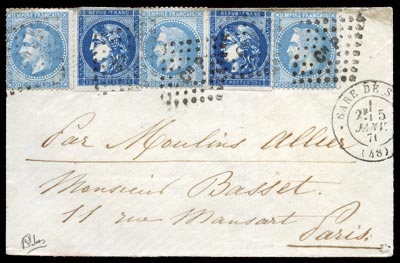 EMPIRE FRANÇAIS REPUB FRANC EMPIRE FRANÇAIS REPUB FRANC EMPIRE FRANÇAIS
GARE DE S
2E 5
JANV.
71
(48)
Par Moulins Allier
Monsieur Basset.
11 rue Mansart
Paris.